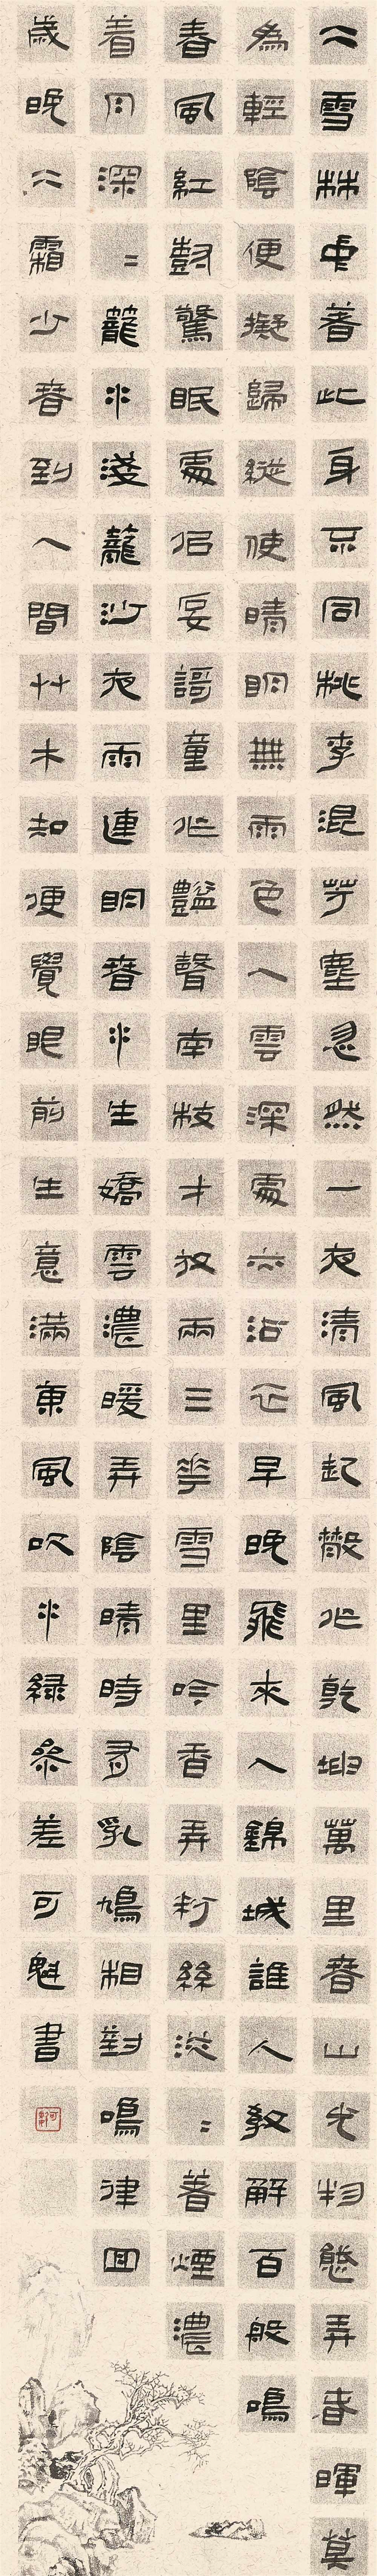 仌雪林中著此身不同桃李混芳塵忽然一夜清風起散作乾坤萬里春山光物態弄春暉莫
為輕陰便擬歸縱使晴明無雨色入雲深處亦沾衣早晚飛來入錦城誰人教解百般鳴
春風紅尌驚眠處佀妒謌童作豔聲南枝才放兩三華雪里吟香弄粉絲淡〻著煙濃
着月深〻籠水淺籠沙夜雨連明春水生嬌雲濃暖弄陰晴時有乳鳩相對鳴律回
歲晚仌霜少春到人間艸木知便覺眼前生意滿東風吹水綠參差可魁書